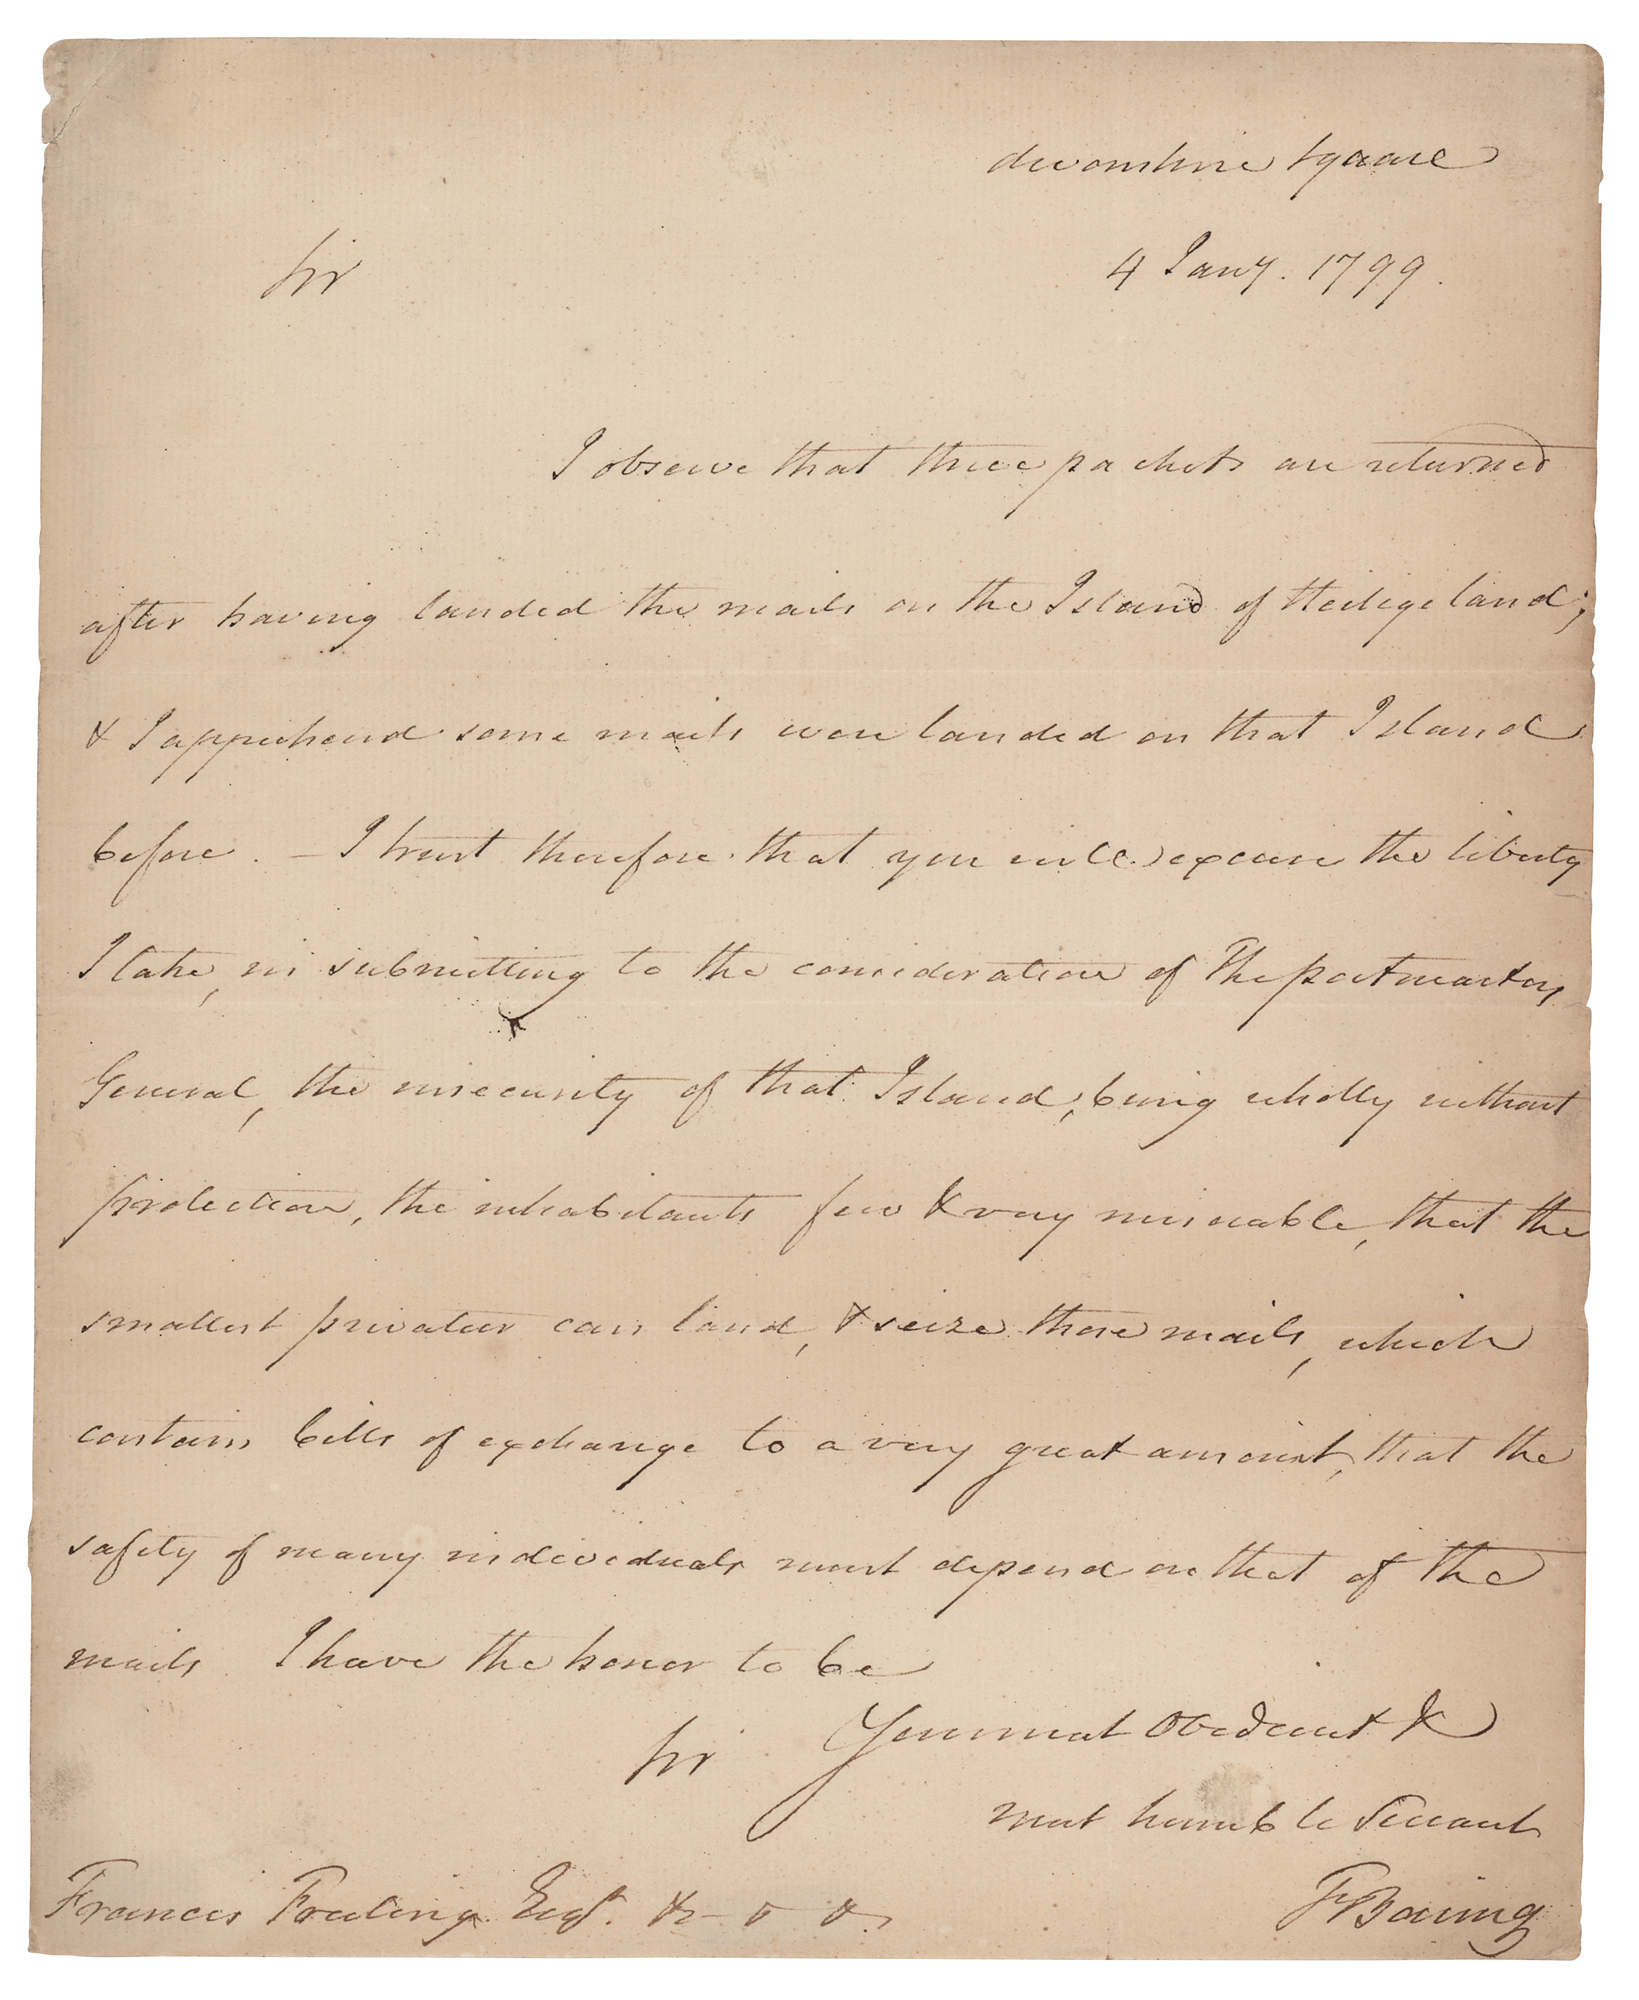 devonshire square
4 Jany. 1799.
Sir
I observe that three packets are returned
after having landed the mails on the Island of Heiligeland;
& I apprehend some mails were landed on that Island
before. – I trust therefore that you will excuse the liberty
I take, in submitting to the consideration of The postmasters
General, the insecurity of that Island, being wholly without
protection, the inhabitants few & very miserable, that the
smallest privateer can land, & seize those mails, which
contain bills of exchange to a very great amount, that the
safety of many individuals must depend on that of the
mails I have the honor to be
Sir Your most Obedient &
most humble Servant
F Baring
Francis Freeling Esqr. &c